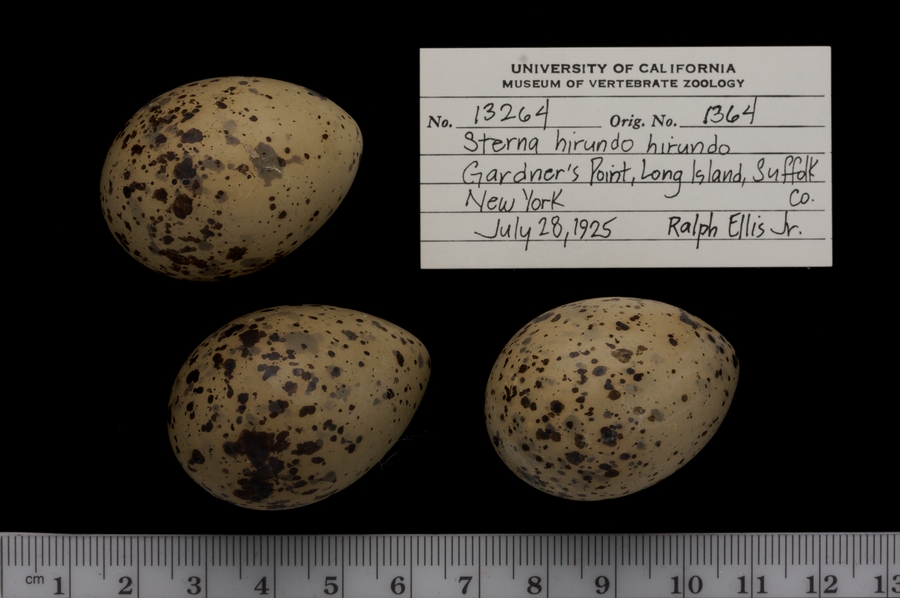 UNIVERSITY OF CALIFORNIA
MUSEUM OF VERTEBRATE ZOOLOGY
No. 13264 Orig. No. 1364
Sterna hirundo hirundo
Gardner's Point, Long Island, Suffolk
New York Co.
July 28, 1925 Ralph Ellis Jr.
cm 1 2 3 4 5 6 7 8 9 10 11 12 13